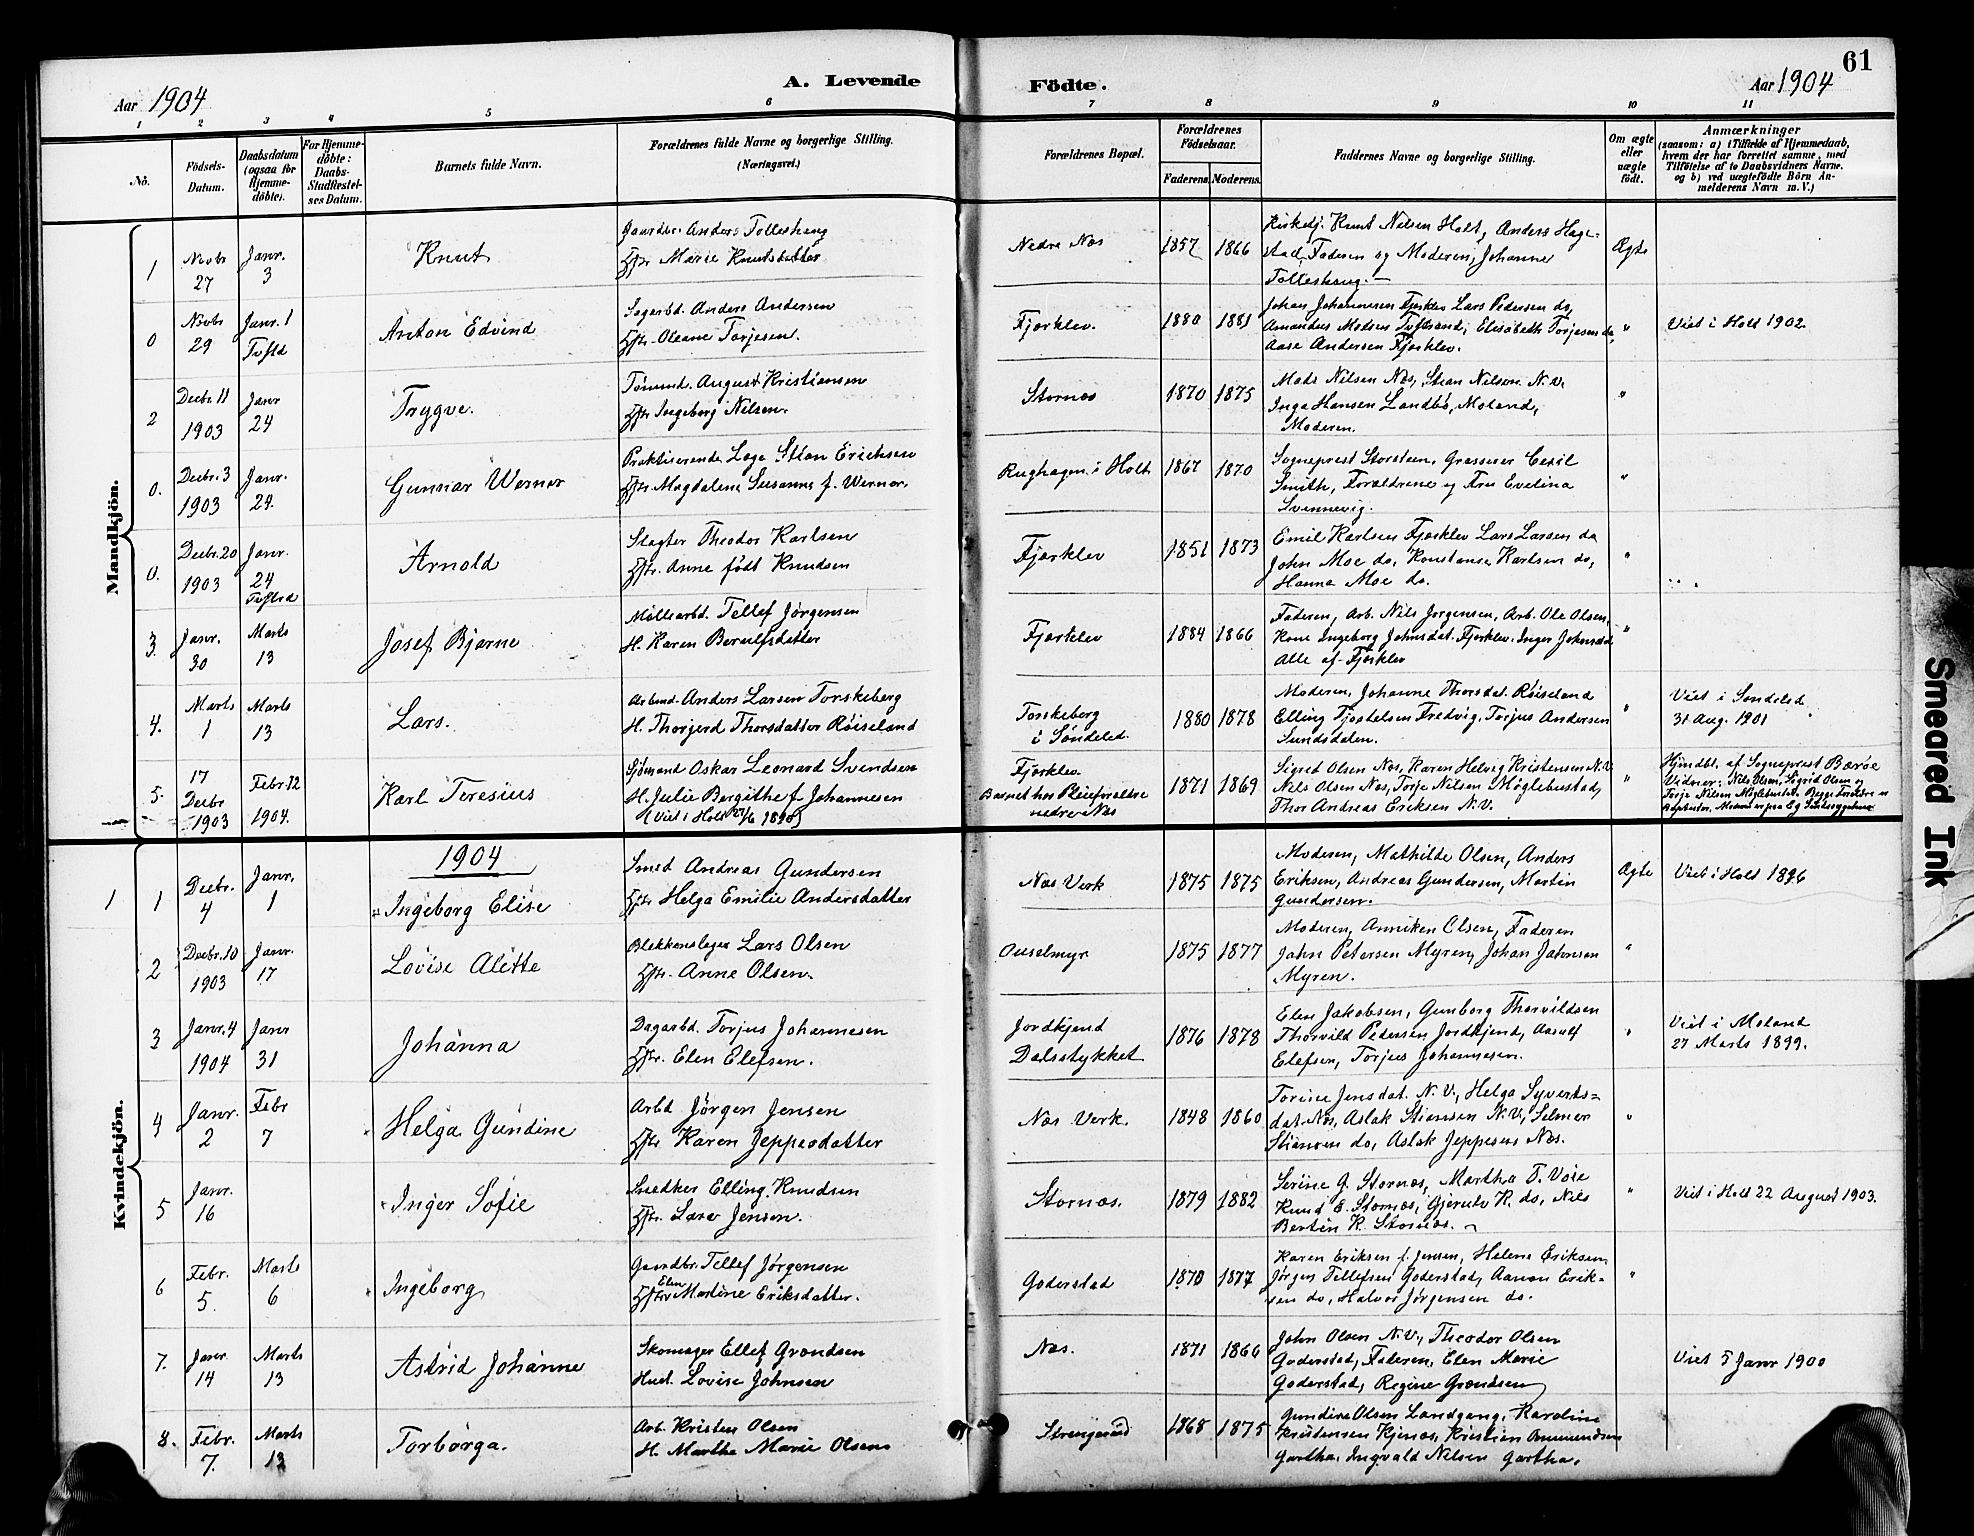 61
A. Levende Födte.
Aar 1904
Aar 1904
1 2 3 4 5 6 7 8 9 10 11
No.
Födsels-
Datum.
Daabsdatum
(ogsaa for
Hjemme-
döbte).
For Hjemme-
döbte:
Daabs-
Stadfæstel-
ses Datum.
Barnets fulde Navn.
Forældrenes fulde Navne og borgerlige Stilling.
(Næringsvei.)
Forældrenes Bopæl.
Forældrenes
Födselsaar.
Faderens. Moderens.
Faddernes Navne og borgerlige Stilling.
Om ægte
eller
uægte
født.
Anmærkninger
(saasom: a) i Tilfælde af Hjemmedaab,
hvem der har forrettet samme, med
Tilföielse af to Daabsvidners Navne.
og b) ved uægtefödte Börn An-
melderens Navn m. V.)
Mandkjön.
1
Novbr
27
Janr.
3
Knut
Gaardbr. Anders Tolleshaug
Hstr. Marie Knutsdatter
Nedre Næs
1857 1866
Kirkedj. Knut Nielsen Holt, Anders Hage-
stad, Faderen og Moderen, Johanne
Tolleshaug.
Ægte
0
Novbr
29
Janr. 1
Tvstd
Anton Edvind
Sagarbd. Anders Andersen
Hstr. Oleane Torjesen.
Fjærklev.
1880 1881
Johan Johannesen Fjærklev Lars Pedersen do,
Amandus Madsen Tvedtsand, Elisabeth Torjesen do,
Aase Andersen Fjærklev.
"
Viet i Holt 1902.
2
Decbr. 11
1903
Janr
24
Trygve.
Tømmd. August Kristiansen
Hstr. Ingeborg Nilsen.
Stornæs
1870 1875
Mads Nilsen Næs, Stian Nilsen N.V.
Inga Hansen Landbö, Moland,
Moderen.
"
0.
Decbr. 3
1903
Janr.
24.
Gunnar Werner
Praktiserende Læge Stian Erichsen
Hstr. Magdalene Susanna f. Werner.
Rughagen i Holt
1867 1870
Sogneprest Storsteen, Grosserer Cecil
Smith, Forældrene og Fru Evelina
Svennevig.
"
0.
Decbr. 20
1903
Janr.
24
Tvstrd
Arnold
Slagter Theodor Karlsen
Hstr. Anne født Knudsen
Fjærklev
1851 1873
Emil Karlsen Fjærklev Lars Larsen do
John Moe do, Konstanse Karlsen do,
Hanna Moe do.
"
3.
Janr.
30
Marts
13
Josef Bjarne
Møllearbd. Tellef Jørgensen
H. Karen Berulfsdatter
Fjærklev
1884 1866
Faderen, Arb. Nils Jørgensen, Arb. Ole Olsen,
Kone Ingeborg Johnsdat. Fjærklev. Inger Johnsdat
Alle af Fjærklev
"
4.
Marts
1
Marts
13
Lars.
Arbmd. Anders Larsen Torskeberg
H. Thorgerd Thorsdatter Røiseland
Torskeberg
i Søndeled.
1880 1878
Moderen, Johanne Thorsdat. Røiseland
Elling Tjostelsen Fredvig, Torjus Andersen
Sundsdalen.
"
Viet i Søndeled
31 Aug. 1901
5.
17
Decbr
1903
Febr. 12
1904.
Karl Teresius
Sjømand Oskar Leonard Svendsen
H. Julie Bergithe f. Johannesen
(Viet i Holt 1890)
Fjærklev.
Barnet hos Pleieforældre
nedre Næs
1871 1869
Sigrid Olsen Næs, Karen Helvig Kristensen N.V.
Nils Olsen Næs, Torje Nielsen Møglebustad,
Thor Andreas Eriksen N.V.
"
Hjmdbt. af Sogneprest Barøe
Vidner: Nils Olsen, Sigrid Olsen og
Torje Nielsen Møglebustad. Begge Forældre er
Baptister.
Kvindekjön.
1904
1
1
Decbr.
4
Janr.
1
Ingeborg Elise
Smed Andreas Gundersen
Hstr. Helga Emilie Andersdatter
Næs Verk
1875 1875
Moderen, Mathilde Olsen, Anders
Eriksen, Andreas Gundersen, Martin
Gundersen.
Ægte
Viet i Holt 1896
2
Decbr. 10
1903
Janr.
17
Lovise Alette
Blikkenslager Lars Olsen
Hstr. Anne Olsen.
Auselmyr
1875 1877
Moderen, Anniken Olsen, Faderen
John Petersen Myren, Johan Johnsen
Myren.
"
3
Janr. 4
1904
Janr
31
Johanna
Dagarbd. Torjus Johannesen
Hstr. Elen Elefsen.
Jordkjend
Dalsstykket
1876 1878
Elen Jakobsen, Gunborg Thorvildsen
Thorvild Pedersen Jordkjend, Aasulf
Elefsen, Torjus Johannesen.
"
Viet i Moland
27 Marts 1899.
4
Janr.
2
Febr
7
Helga Gundine
Arbd. Jörgen Jensen
Hstr. Karen Jeppesdatter
Næs Verk.
1848 1860
Torine Jensdat. N.V., Helga Syverts-
dat. Næs, Aslak Stiansen N.V., Selmer
Stiansen do, Aslak Jeppesen Næs.
"
5
Janr.
16
Inger Sofie
Snedker Elling Knudsen
Hstr. Lara Jensen.
Stornæs.
1879 1882
Serine G. Stornæs, Martha T. Voie
Knud E. Stornæs, Gjerulv K. do, Nils
Bertin K. Stornæs.
"
Viet i Holt 22 August 1903.
6
Febr.
5.
Marts
6
Ingeborg
Gaardbr. Tellef Jørgensen
Hstr. Elen Martine Eriksdatter.
Goderstad
1870 1877
Karen Eriksen f. Jensen, Helene Eriksen,
Jørgen Tellefsen Goderstad, Aanon Erik-
sen do, Halvor Jørgensen do.
"
7.
Janr.
14
Marts
13
Astrid Johanne
Skomager Ellef Grondsen
Hust. Lovise Johnsen
Næs.
1871 1866
John Olsen N.V., Theodor Olsen
Goderstad, Faderen, Elen Marie
Goderstad, Regine Grondsen
Viet 5 Janr 1900
8.
Febr.
7.
Marts
13
Torborga.
Arb. Kristen Olsen
H. Marthe Marie Olsen
Strengereid
1868 1875
Gundine Olsen Landgang, Karoline
Kristensen Kjenæs, Kristian Ommundsen
Gartha, Ingvald Nilsen Gartha.
Smeared Ink